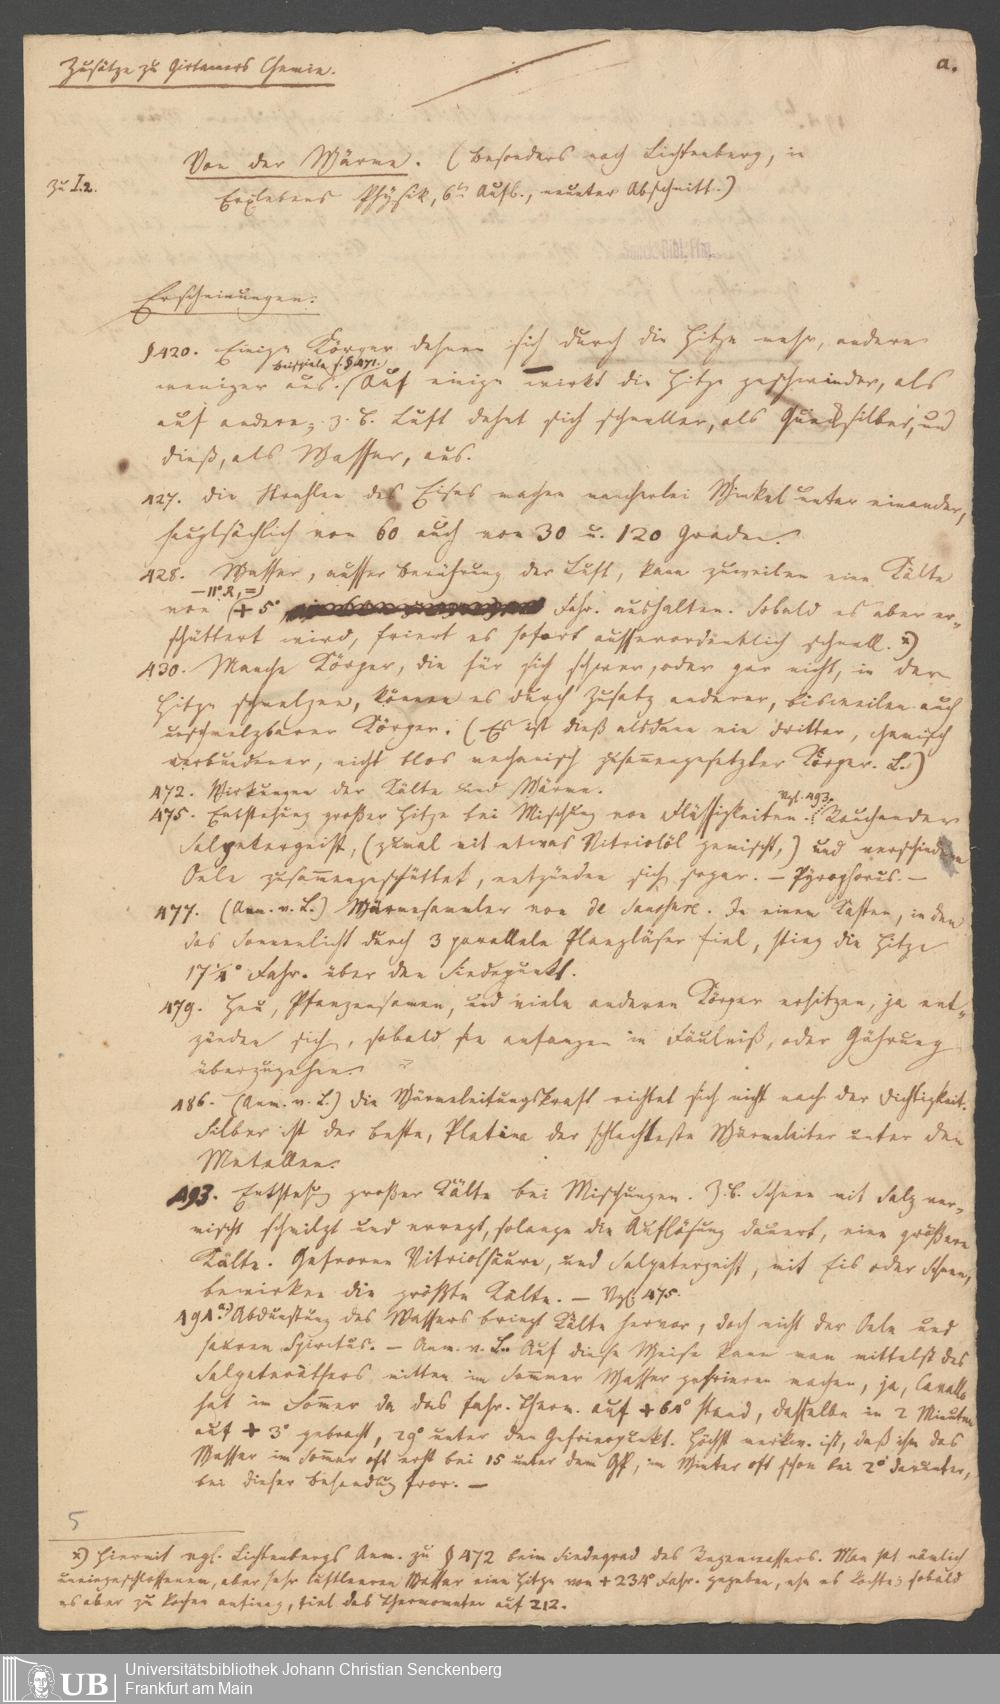 Zusätze zu Girtanners Chemie.
a.
Von der Wärme. (besonders nach Lichtenberg, in
zu I.2.
Erxlebens Physik, 6te Aufl., neunter Abschnitt.)
Senck. Bibl. Ffm.
Erscheinungen.
§420. Einige Körper dehnen sich durch die Hitze mehr, andere
Beispiele s. § 471.
weniger aus. (Auf einige wirkt die Hitze geschwinder, als
auf andere, z. B. Luft dehnt sich schneller, als Quecksilber, und
dieß, als Wasser, aus.
427. Die Strahlen des Eises machen mancherlei Winkel unter einander,
hauptsächlich von 60 auch von 30 u. 120 Graden.
428. Wasser, ausser Berührung der Luft, kann zuweilen eine Kälte
–11° R, =)
von (+5° Fahr. aushalten. Sobald es aber er-
schüttert wird, friert es sofort ausserordentlich schnell. x)
430. Manche Körper, die für sich schwer, oder gar nicht, in der
Hitze schmelzen, können es durch Zusatz anderer, bisweilen auch
unschmelzbarer Körper. (Es ist dieß alsdann ein dritter, chemisch
verbundener, nicht blos mechanisch zusammengesetzter Körper. L.)
472. Wirkungen der Kälte und Wärme.
Vgl. 493.
475. Entstehung großer Hitze bei Mischung von Flüssigkeiten. Rauchender
Salpetergeist, (zumal mit etwas Vitriolöl gemischt,) und verschiedene
Oele zusammengeschüttet, entzünden sich sogar. – Pyrophorus. –
477. (Anm. v. L.) Wärmesammler von de Saussure. In einem Kasten, in den
das Sonnenlicht durch 3 parallele Plangläser fiel, stieg die Hitze
17¼° Fahr. über den Siedepunkt.
479. Heu, Pflanzensamen, und viele anderen Körper erhitzen, ja ent-
zünden sich, sobald sie anfangen in Fäulniß, oder Gährung
überzugehen.
486. (Anm. v. L.) Die Wärmeleitungskraft richtet sich nicht nach der Dichtigkeit.
Silber ist der beste, Platina der schlechteste Wärmeleiter unter den
Metallen.
493. Entstehung großer Kälte bei Mischungen. Z.B. Schnee mit Salz ver-
mischt schmilzt und erregt, solange die Auflösung dauert, eine größere
Kälte. Gefrorne Vitriolsäure, und Salpetergeist, mit Eis oder Schnee,
bewirken die größte Kälte. – Vgl. 475.
494. a) Abdunstung des Wassers bringt Kälte hervor, doch nicht der Oele und
sauren Spiritus. – Anm. v. L. Auf diese Weise kann man mittelst des
Salpeteräthers mitten im Sommer Wasser gefrieren machen, ja, Cavallo
hat im Sommer da das Fahr. Therm. auf +64° stand, dasselbe in 2 Minuten
auf +3° gebracht, 29° unter den Gefrierpunkt. Höchst merkw. ist, daß ihm das
Wasser im Sommer oft erst bei 15 unter dem GP, im Winter oft schon bei 2° darunter,
bei dieser Behandlung fror. –
5
x) Hiermit vgl. Lichtenbergs Anm. zu § 472 beim Siedegrad des Regenwassers. Man hat nämlich
uneingeschlossenem, aber sehr luftleeren Wasser eine Hitze von +234° Fahr. gegeben, ehe es kochte; sobald
es aber zu kochen anfing, fiel das Thermometer auf 212.
UB
Universitätsbibliothek Johann Christian Senckenberg
Frankfurt am Main